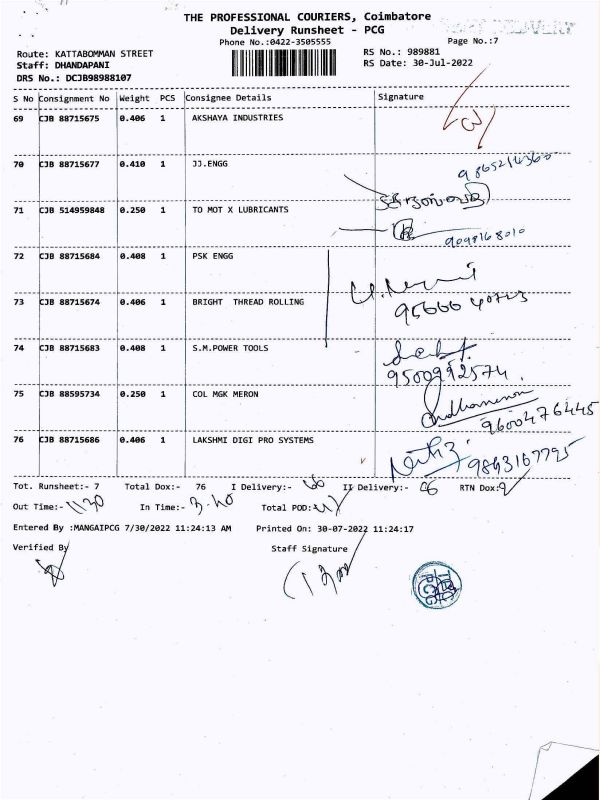 THE PROFESSIONAL COURIERS, Coimbatore
Delivery Runsheet - PCG
Phone No.:0422-3505555
Page No.:7
Route: KATTABOMMAN STREET
RS No.: 989881
Staff: DHANDAPANI
RS Date: 30-Jul-2022
DRS No.: DCJB98988107
S No Consignment No Weight PCS Consignee Details Signature
69 CJB 88715675 0.406 1 AKSHAYA INDUSTRIES
70 CJB 88715677 0.410 1 JJ.ENGG
71 CJB 514959848 0.250 1 TO MOT X LUBRICANTS
9098168010
72 CJB 88715684 0.408 1 PSK ENGG
73 CJB 88715674 0.406 1 BRIGHT THREAD ROLLING
74 CJB 88715683 0.408 1 S.M.POWER TOOLS
9500992574.
75 CJB 88595734 0.250 1 COL MGK MERON
9600476445
76 CJB 88715686 0.406 1 LAKSHMI DIGI PRO SYSTEMS
9843167795
Tot. Runsheet:- 7 Total Dox:- 76 I Delivery:- II Delivery:- RTN Dox:-
Out Time:- 1120 In Time:- 3.40 Total POD:-
Entered By :MANGAIPCG 7/30/2022 11:24:13 AM Printed On: 30-07-2022 11:24:17
Verified By Staff Signature